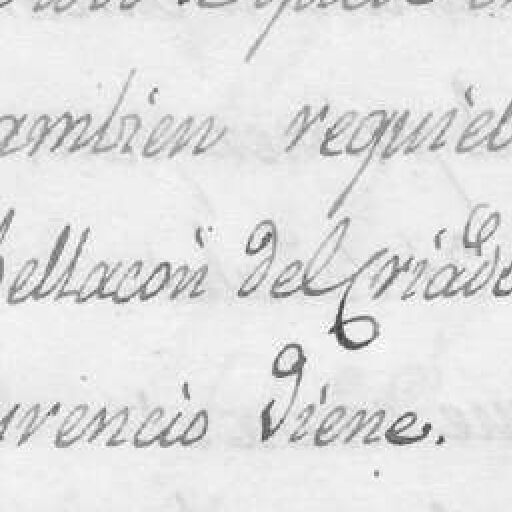 ambien requieb
bellacon del Criado
urencio Viene.